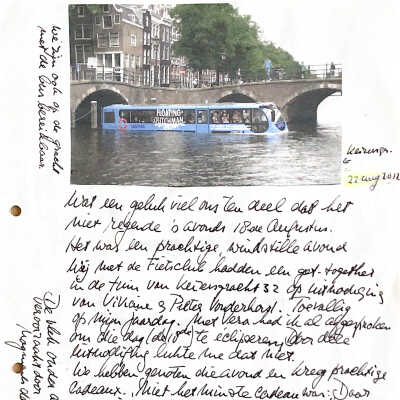 We zijn ook op de gracht
met de bus bereikbaar
FLOATING
DUTCHMAN
Keizersgr.
22 aug 2012
Wat een geluk viel ons ten deel dat het
niet regende 's avonds 18 de Augustus.
Het was een prachtige, windstille avond
Wij met de Fietsclub hadden een get-together
in de tuin van Keizersgracht 32 op uitnodiging
van Viviane & Pieter Vonderhorst. Toevallig
op mijn jaardag. Met Vera had ik al afgesproken
om die dag (de 18de) te eclipseren, door deze
uitnodiging lukte me dat niet.
We hebben genoten die avond en kreeg prachtige
cadeaux. Niet het minste cadeau was: Daar
De blik onder a
veroorzaakt door